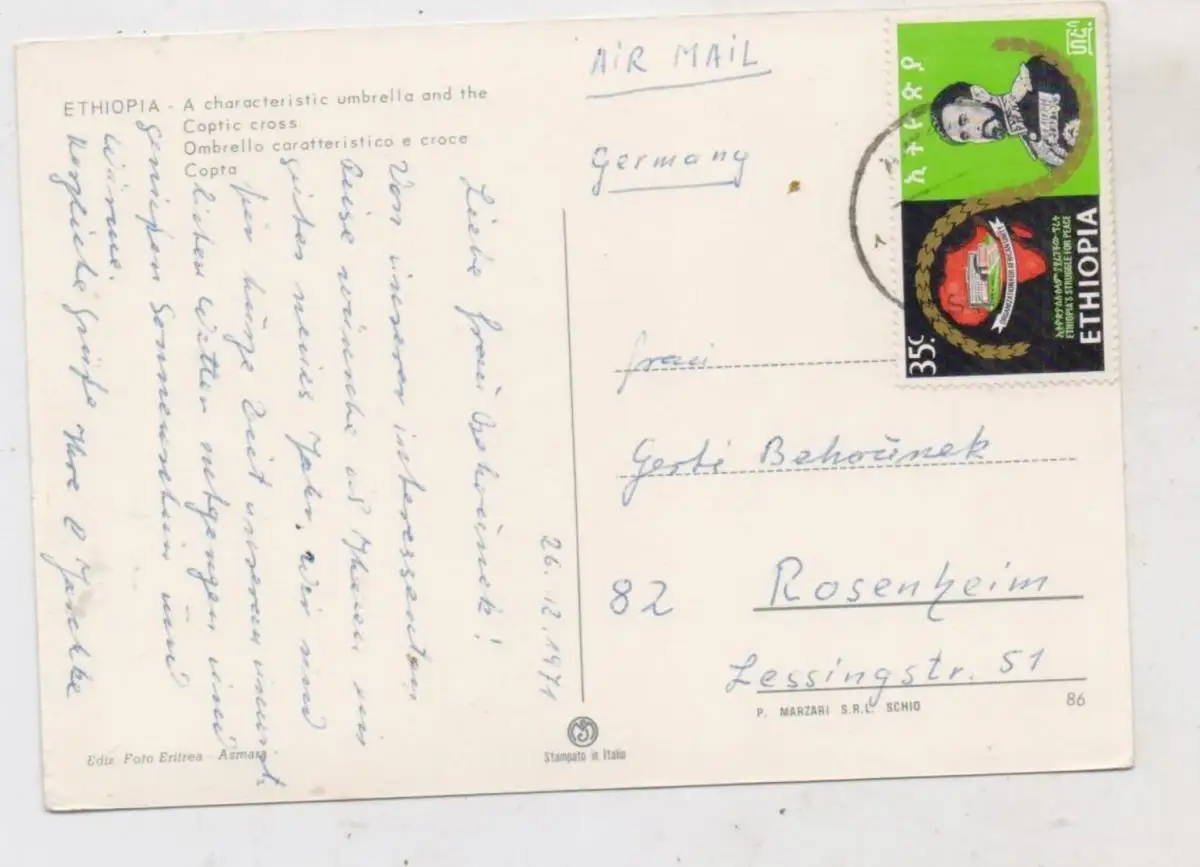 ETHIOPIA - A characteristic umbrella and the
Coptic cross
Ombrello caratteristico e croce
Copta
26.12.1971
Liebe Frau Behounek!
Von unserer interessanten
Reise wünsche ich Ihnen ein
gutes neues Jahr. Wir sind
für kurze Zeit unserem
lichen Wetter entgangen und
genießen Sonnenschein und
Wärme.
Herzliche Grüße Ihre C Jaschke
Ediz. Foto Eritrea - Asmara
Stampato in Italia
AIR MAIL
Germany
Frau
Gerti Behounek
82 Rosenheim
Lessingstr. 51
P. MARZARI S.R.L. SCHIO
86
ኢትዮጵያ
ORGANIZATION FOR AFRICAN UNITY
ETHIOPIA'S STRUGGLE FOR PEACE
ETHIOPIA
35c.